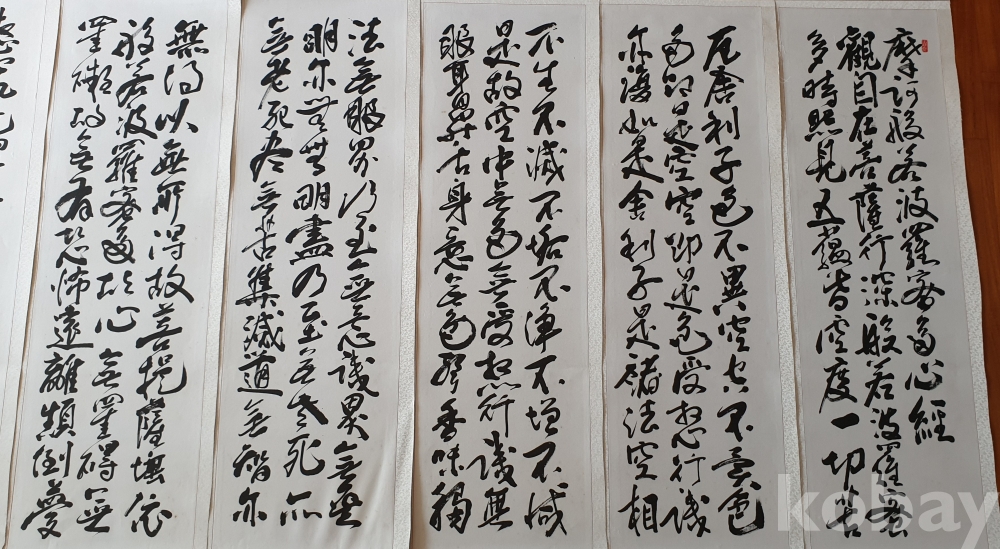 摩訶般若波羅密多心經
觀自在菩薩行深般若波羅蜜
多時照見五蘊皆空度一切苦
厄舍利子色不異空空不異色
色卽是空空卽是色受想行識
亦復如是舍利子是諸法空相
不生不滅不垢不淨不增不減
是故空中無色無受想行識無
眼耳鼻舌身意無色聲香味觸
法無眼界乃至無意識界無無
明亦無無明盡乃至無老死亦
無老死盡無苦集滅道無智亦
無得以無所得故菩提薩埵依
般若波羅密多故心無罣碍無
罣碍故無有恐怖遠離顚倒夢
kobay